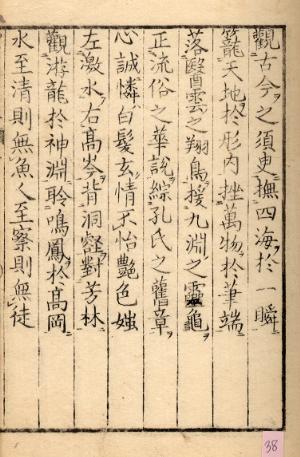 觀古今之須臾撫四海於一瞬
籠天地於形內挫萬物於筆端
落翳雲之翔鳥援九淵之靈龜
正流俗之華說綜孔氏之舊章
心誠憐白髮玄情不怡艷色媸
左激水右高岑背洞壑對芳林
觀游龍於神淵聆鳴鳳於高岡
水至清則無魚人至察則無徒
38